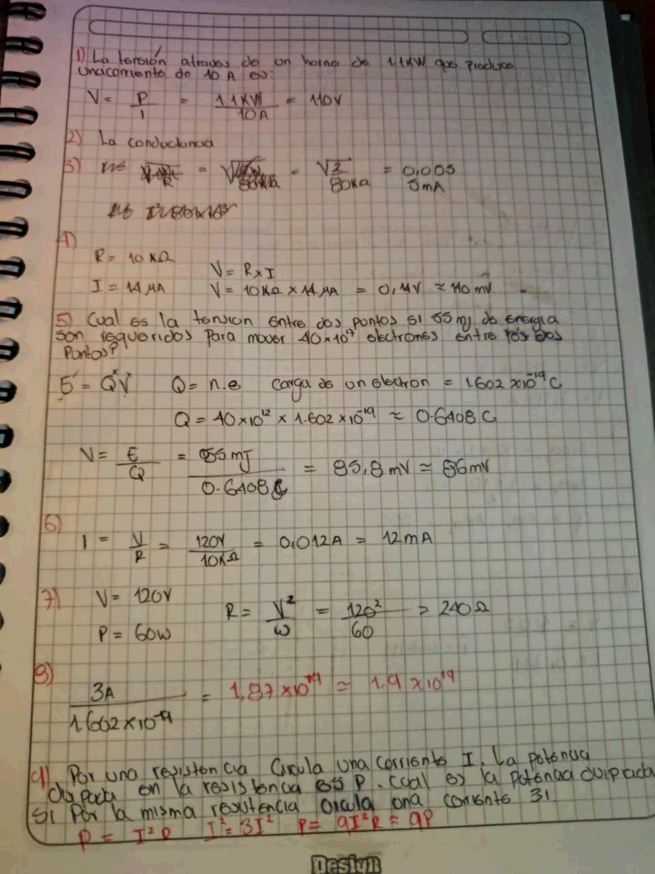 1) La tensión atraves de un horno de 1.1KW que produce
una corriente de 10 A es:
V = P/I = 1.1KW/10A = 110V
2) La conductancia
3) = √2/80KΩ = 0,005
5mA
4)
R = 10 KΩ
V = R x I
I = 14 μA V = 10KΩ x 14 μA = 0,14V ≈ 140 mV
5) Cual es la tension entre dos puntos si 55 mj de energia
son requeridos para mover electrones entre los dos
Puntos?
Q = n.e Carga de un electron = 1.602 x10⁻¹⁹ C
Q = 40x10¹² x 1.602 x10⁻¹⁹ ≈ 0.6408 C
V = E/Q = 55mJ/0.6408C = 85,8 mV ≃ 86mV
6)
I = V/R = 120V/10KΩ = 0,012A = 12mA
7) V = 120V
R = V²/W = 120²/60 = 240Ω
P = 60W
8)
3A/1.602x10⁻¹⁹ = 1,87 x10¹⁹ ≃ 1.9 x10¹⁹
9) Por una resistencia Circula una corriente I. La potencia
en la resistencia es P. Cual es la potencia
Si Por la misma resistencia circula una corriente 3I
P = I²R I² = 3I² P = 9I²R = 9P
Design